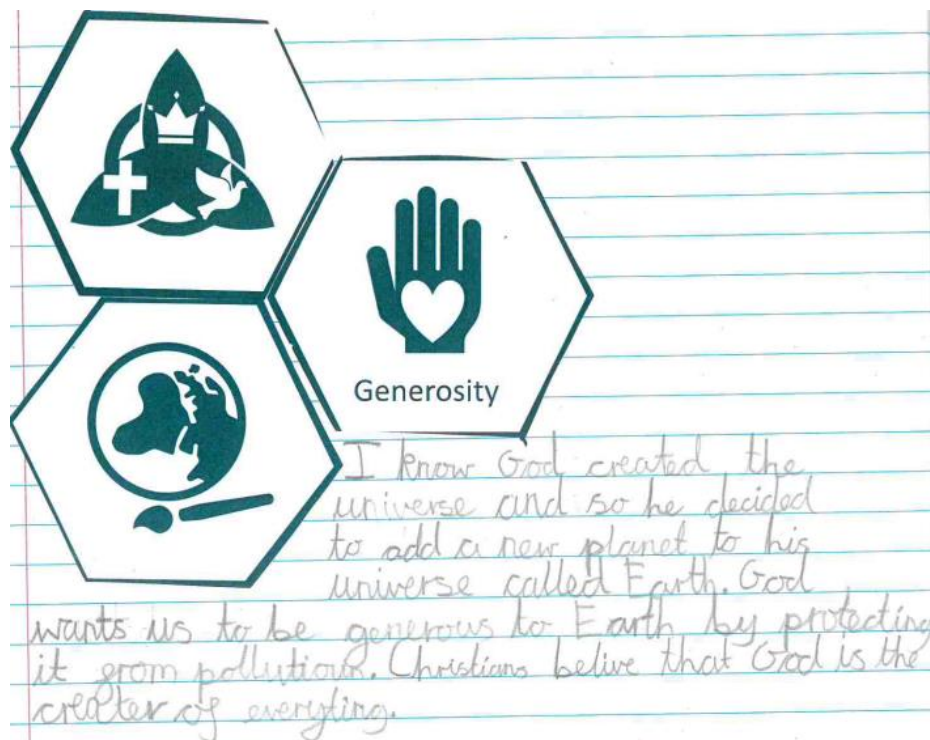 Generosity
I know God created the
universe and so he decided
to add a new planet to his
universe called Earth. God
wants us to be generous to Earth by protecting
it grom pollutioun. Christians belive that God is the
creater of everyting.